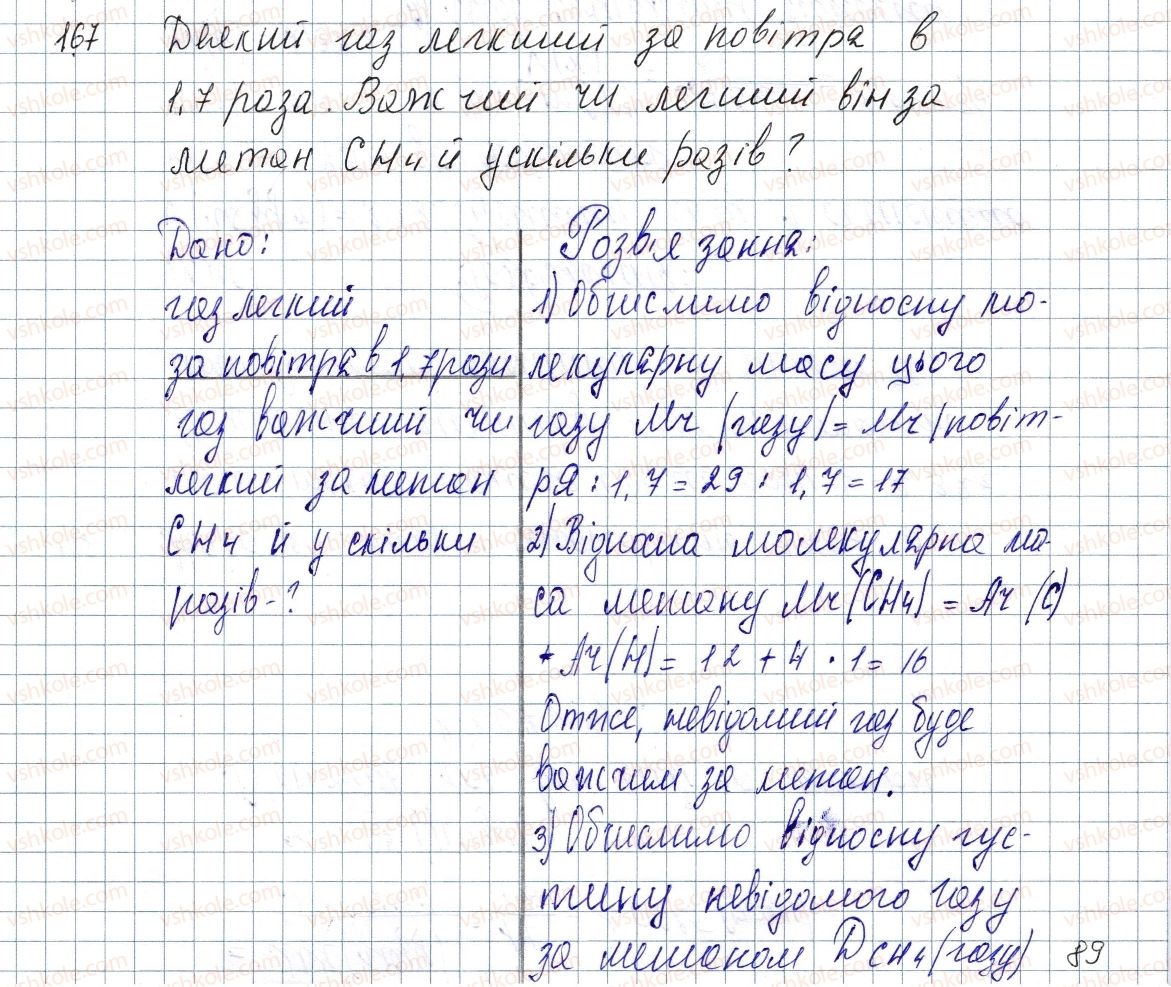 167 Деякий газ легкший за повітря в
1,7 раза. Важчий чи легший він за
метан CH4 й у скільки разів?
Дано:
газ легкий
за повітря в 1,7 рази
газ важчий чи
легкий за метан
CH4 й у скільки
разів-?
Розв'язання:
1) Обчислимо відносну мо-
лекулярну масу цього
газу Mr (газу) = Mr (повіт-
ря : 1,7 = 29 : 1,7 = 17
2) Відносна молекулярна ма-
са метану Mr (CH4) = Ar (C)
+ Ar (H) = 12 + 4 · 1 = 16
Отже, невідомий газ буде
важчим за метан.
3) Обчислимо відносну гус-
тину невідомого газу
за метаном D CH4 (газу)
89